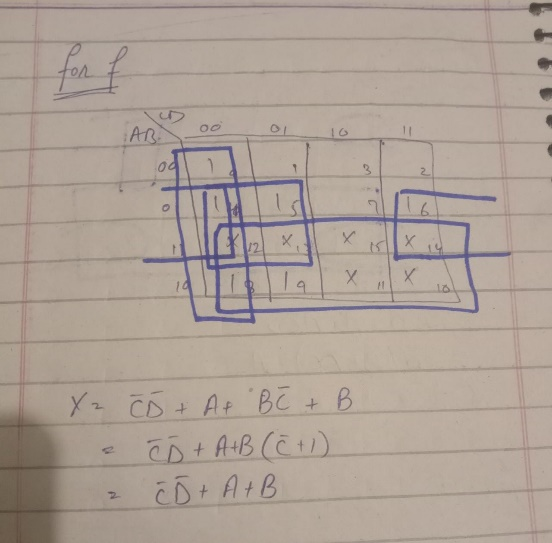 for f
CD
AB 00 01 10 11
00 1 0 1 3 2
0 1 4 1 5 7 1 6
11 X 12 X 13 X 15 X 14
10 1 8 1 9 X 11 X 10
X = C̅D̅ + A + BC̅ + B
= C̅D̅ + A+B(C̅+1)
= C̅D̅ + A+B